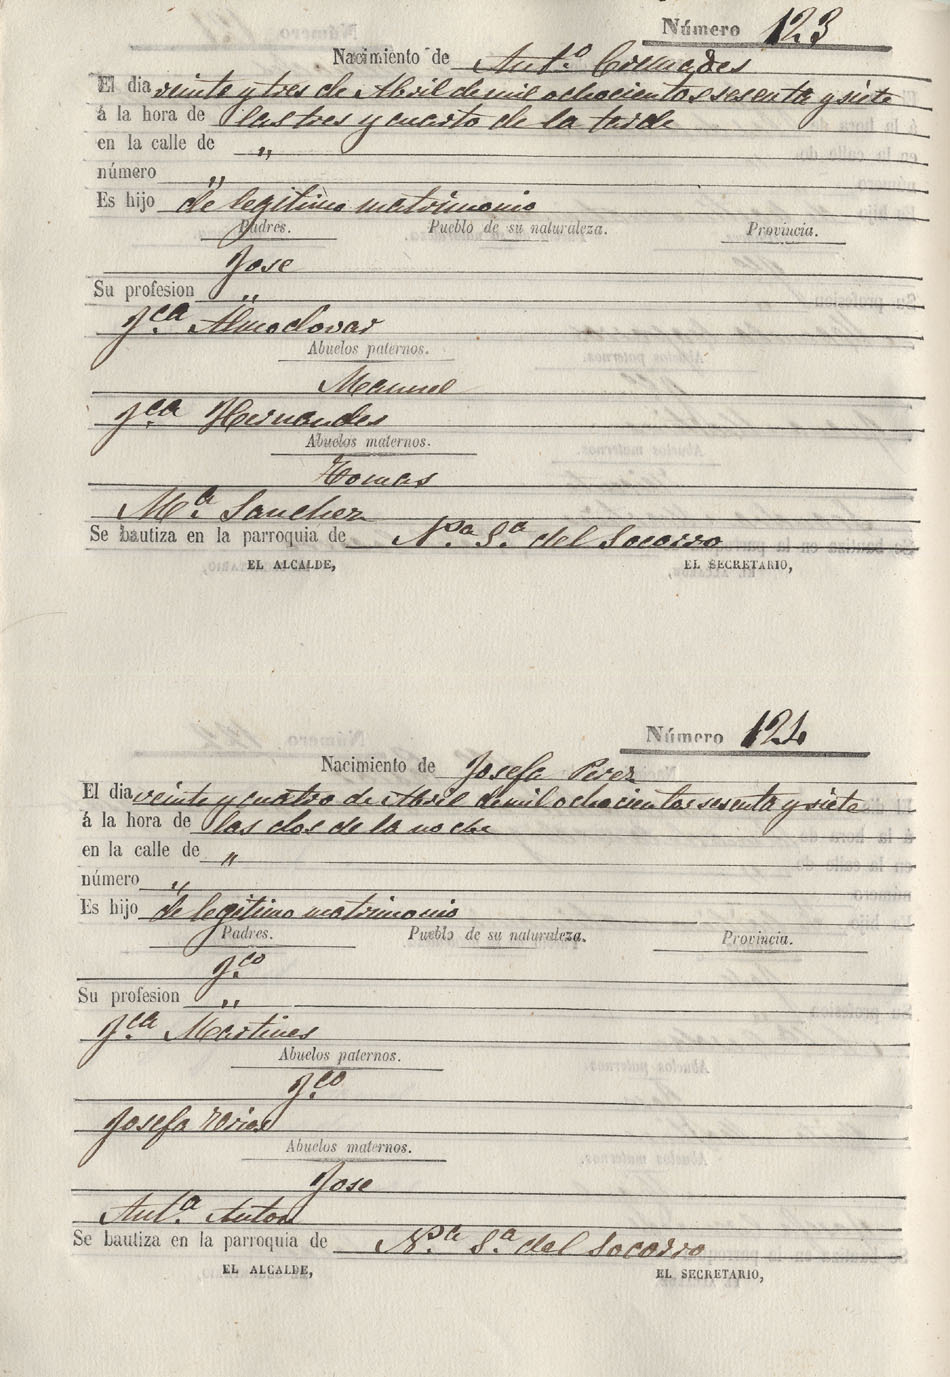 Número 123
Nacimiento de Antº. Cremades
El dia veinte y tres de Abril de mil ochocientos sesenta y siete
á la hora de las tres y cuarto de la tarde
en la calle de "
número "
Es hijo de legitimo matrimonio
Padres. Pueblo de su naturaleza. Provincia.
Jose
Su profesion "
Fca Almodovar
Abuelos paternos.
Manuel
Fca Hernandes
Abuelos maternos.
Tomas
Mª. Sanchez
Se bautiza en la parroquia de Nª. Sª. del Socorro
EL ALCALDE, EL SECRETARIO,
Número 124
Nacimiento de Josefa Perez
El dia veinte y cuatro de Abril de mil ochocientos sesenta y siete
á la hora de las dos de la noche
en la calle de "
número "
Es hijo de legitimo matrimonio
Padres. Pueblo de su naturaleza. Provincia.
Fco
Su profesion "
Fca Martines
Abuelos paternos.
Fco
Josefa
Abuelos maternos.
Jose
Antª. Anton
Se bautiza en la parroquia de Nª. Sª. del Socorro
EL ALCALDE, EL SECRETARIO,